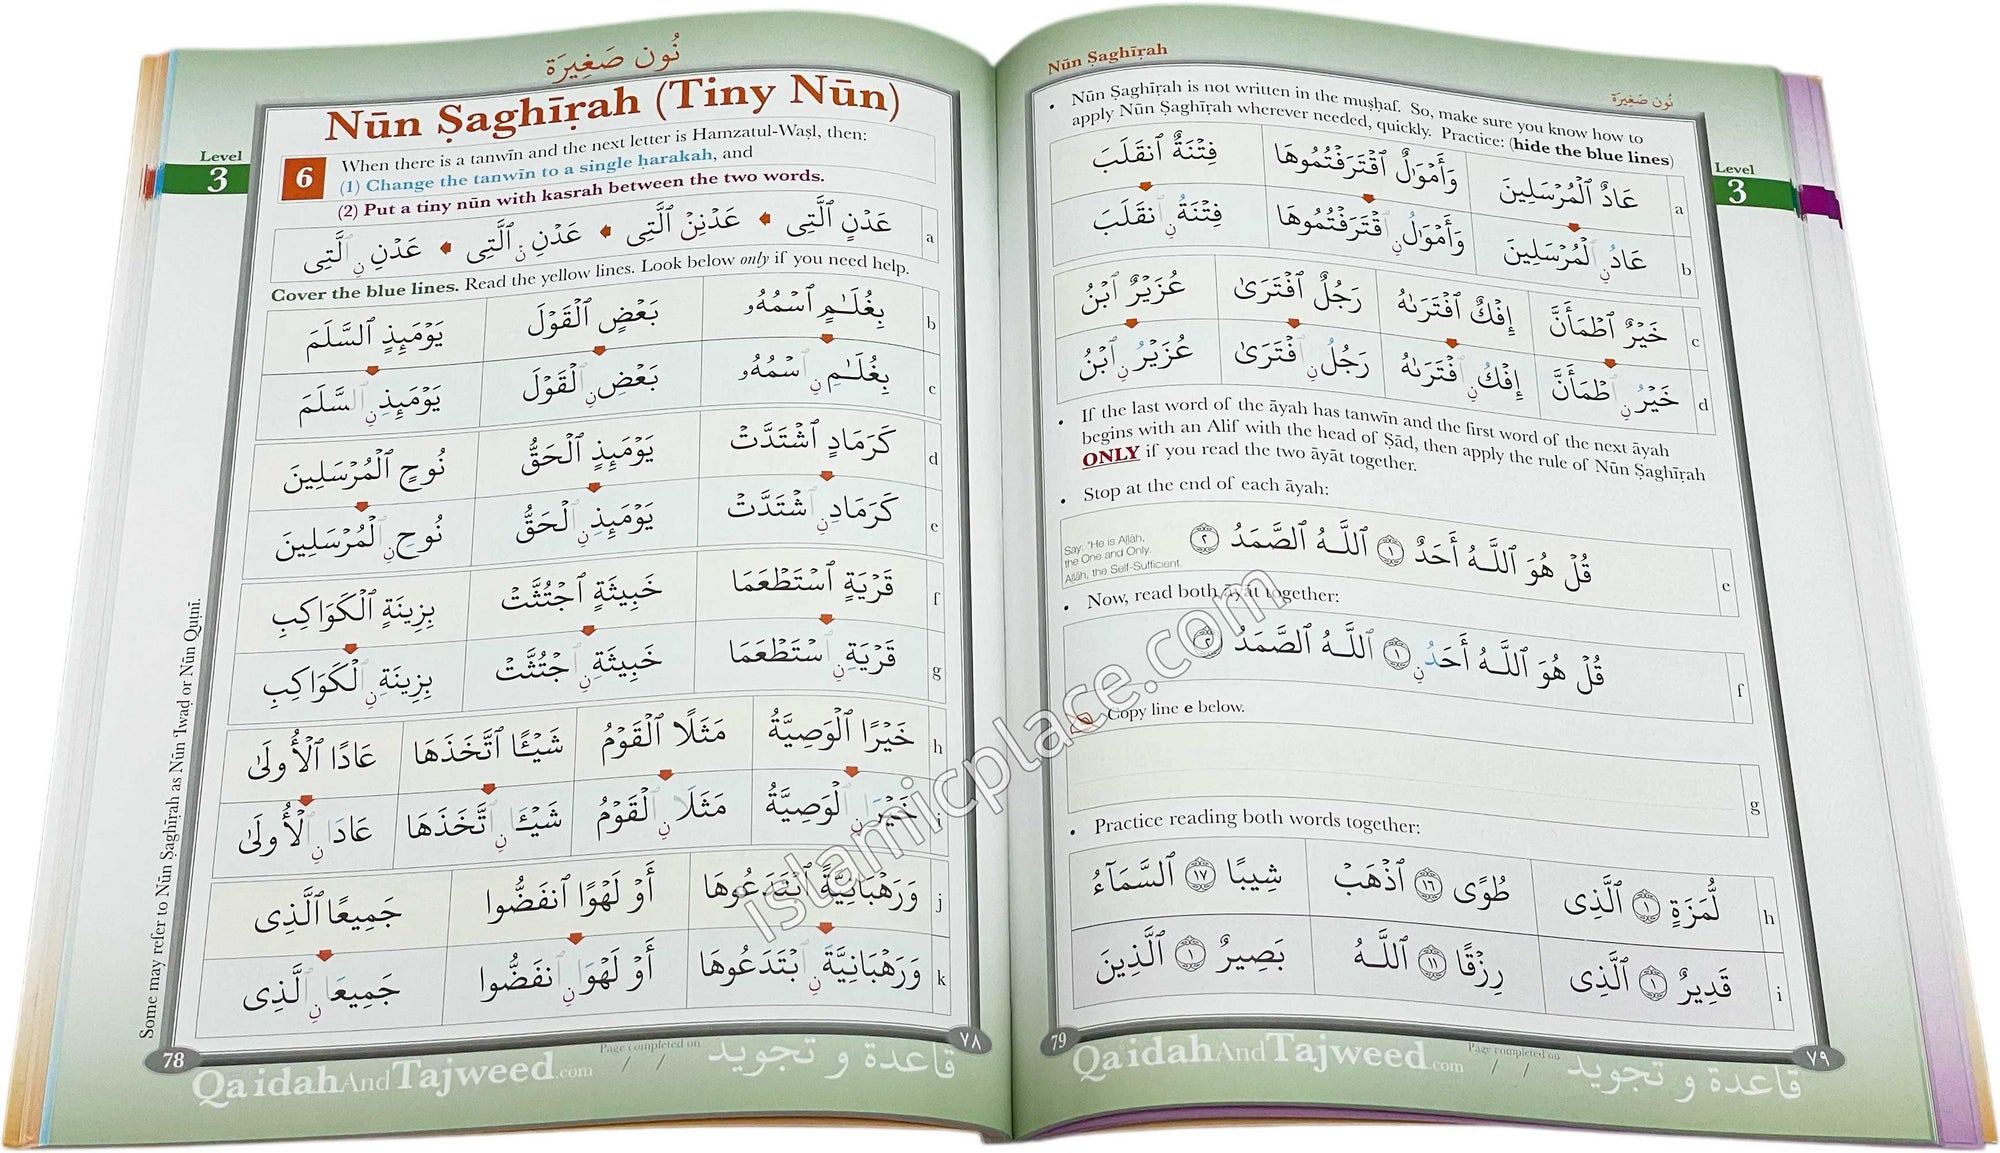 نُون صَغِيرَة
Nūn Ṣaghīrah (Tiny Nūn)
Level
3
6
When there is a tanwīn and the next letter is Hamzatul-Waṣl, then:
(1) Change the tanwīn to a single ḥarakah, and
(2) Put a tiny nūn with kasrah between the two words.
عَدْنٍ ٱلَّتِى عَدْنِنْ ٱلَّتِى عَدْنِ نِ ٱلَّتِى عَدْنِ نِ ٱلَّتِى a
Cover the blue lines. Read the yellow lines. Look below only if you need help.
بِغُلَـٰمٍ ٱسْمُهُۥ بَعْضٍ ٱلْقَوْلَ يَوْمَئِذٍ ٱلسَّلَمَ b
بِغُلَـٰمِ نِ ٱسْمُهُۥ بَعْضِ نِ ٱلْقَوْلَ يَوْمَئِذِ نِ ٱلسَّلَمَ c
كَرَمَادٍ ٱشْتَدَّتْ يَوْمَئِذٍ ٱلْحَقُّ نُوحٍ ٱلْمُرْسَلِينَ d
كَرَمَادِ نِ ٱشْتَدَّتْ يَوْمَئِذِ نِ ٱلْحَقُّ نُوحِ نِ ٱلْمُرْسَلِينَ e
قَرْيَةٍ ٱسْتَطْعَمَا خَبِيثَةٍ ٱجْتُثَّتْ بِزِينَةٍ ٱلْكَوَاكِبِ f
قَرْيَةِ نِ ٱسْتَطْعَمَا خَبِيثَةِ نِ ٱجْتُثَّتْ بِزِينَةِ نِ ٱلْكَوَاكِبِ g
خَيْرًا ٱلْوَصِيَّةُ مَثَلًا ٱلْقَوْمُ شَيْـًٔا ٱتَّخَذَهَا عَادًا ٱلْأُولَىٰ h
خَيْرَا نِ ٱلْوَصِيَّةُ مَثَلَا نِ ٱلْقَوْمُ شَيْـَٔا نِ ٱتَّخَذَهَا عَادَا نِ ٱلْأُولَىٰ i
وَرَهْبَانِيَّةً ٱبْتَدَعُوهَا أَوْ لَهْوًا ٱنفَضُّوا جَمِيعًا ٱلَّذِى j
وَرَهْبَانِيَّةَ نِ ٱبْتَدَعُوهَا أَوْ لَهْوَا نِ ٱنفَضُّوا جَمِيعَا نِ ٱلَّذِى k
Some may refer to Nūn Ṣaghīrah as Nūn ʿIwaḍ or Nūn Quṭnī.
78
٧٨
QaidahAndTajweed.com
Page completed on / /
قاعدة و تجويد
Nūn Ṣaghīrah
نُون صَغِيرَة
Level
3
• Nūn Ṣaghīrah is not written in the muṣḥaf. So, make sure you know how to
apply Nūn Ṣaghīrah wherever needed, quickly. Practice: (hide the blue lines)
عَادٌ ٱلْمُرْسَلِينَ وَأَمْوَٰلٌ ٱقْتَرَفْتُمُوهَا فِتْنَةٌ ٱنقَلَبَ a
عَادُ نِ ٱلْمُرْسَلِينَ وَأَمْوَٰلُ نِ ٱقْتَرَفْتُمُوهَا فِتْنَةُ نِ ٱنقَلَبَ b
خَيْرٌ ٱطْمَأَنَّ إِفْكٌ ٱفْتَرَىٰهُ رَجُلٌ ٱفْتَرَىٰ عُزَيْرٌ ٱبْنُ c
خَيْرُ نِ ٱطْمَأَنَّ إِفْكُ نِ ٱفْتَرَىٰهُ رَجُلُ نِ ٱفْتَرَىٰ عُزَيْرُ نِ ٱبْنُ d
• If the last word of the āyah has tanwīn and the first word of the next āyah
begins with an Alif with the head of Ṣād, then apply the rule of Nūn Ṣaghīrah
ONLY if you read the two āyāt together.
• Stop at the end of each āyah:
Say: "He is Allāh,
the One and Only.
Allāh, the Self-Sufficient.
قُلْ هُوَ ٱللَّـهُ أَحَدٌ ١ ٱللَّـهُ ٱلصَّمَدُ ٢ e
• Now, read both āyāt together:
قُلْ هُوَ ٱللَّـهُ أَحَدُ نِ ١ ٱللَّـهُ ٱلصَّمَدُ ٢ f
Copy line e below.
g
• Practice reading both words together:
لُّمَزَةٍ ١ ٱلَّذِى طُوًى ١٦ ٱذْهَبْ شِيبًا ١٧ ٱلسَّمَآءُ h
قَدِيرٌ ١ ٱلَّذِى رِزْقًا ١١ ٱللَّـهُ بَصِيرٌ ١ ٱلَّذِينَ i
79
٧٩
QaidahAndTajweed.com
Page completed on / /
قاعدة و تجويد
islamicplace.com